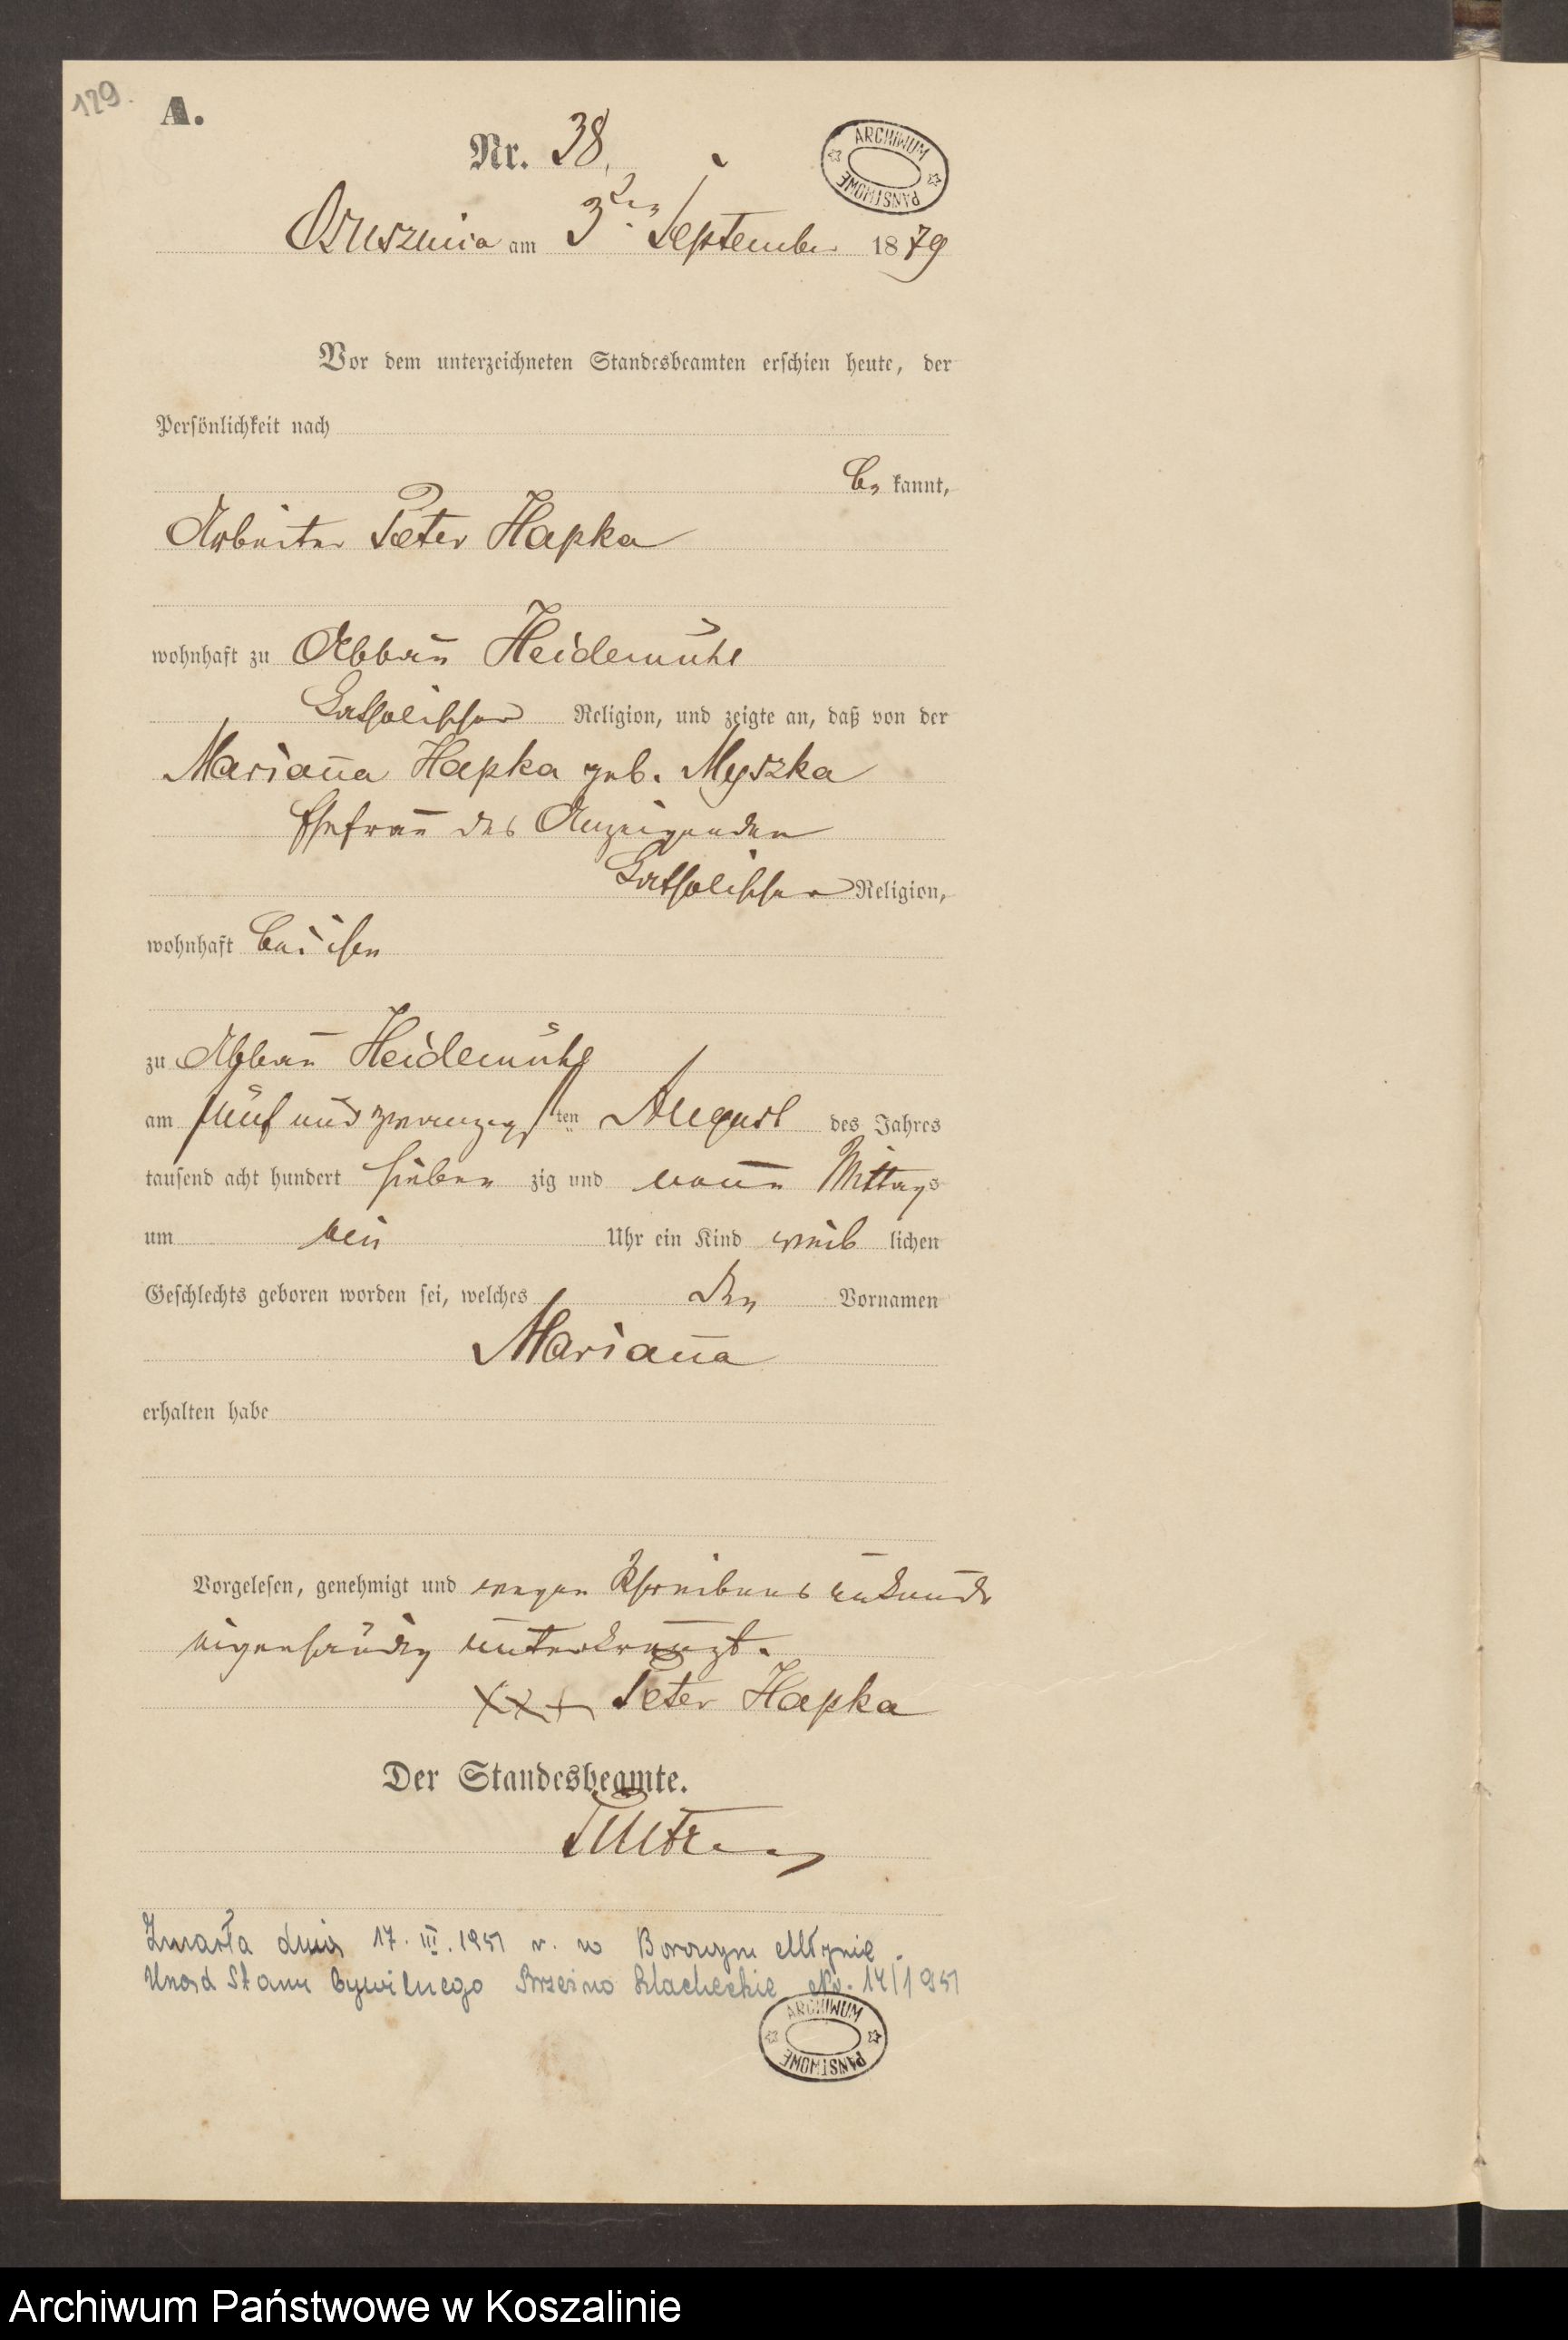 129.
A.
Nr. 38.
ARCHIWUM PAŃSTWOWE
Osusznica am 3ten September 1879
Vor dem unterzeichneten Standesbeamten erschien heute, der
Persönlichkeit nach
be kannt,
Arbeiter Peter Hapka
wohnhaft zu Abbau Heidemühl
katholischer Religion, und zeigte an, daß von der
Marianna Hapka geb. Myszka
Ehefrau des Anzeigenden
katholischer Religion,
wohnhaft bei ihm
zu Abbau Heidemühl
am fünf und zwanzigsten August des Jahres
tausend acht hundert sieben zig und neun Mittags
um ein Uhr ein Kind weib lichen
Geschlechts geboren worden sei, welches den Vornamen
Marianna
erhalten habe
Vorgelesen, genehmigt und wegen Schreibensunkunde
eigenhändig unterkreuzt.
xxx Peter Hapka
Der Standesbeamte.
Zmarła dnia 17. III. 1951 r. w Borowym Młynie.
Urząd Stanu Cywilnego Brzeźno Szlacheckie Nr. 14/1951
ARCHIWUM PAŃSTWOWE
Archiwum Państwowe w Koszalinie